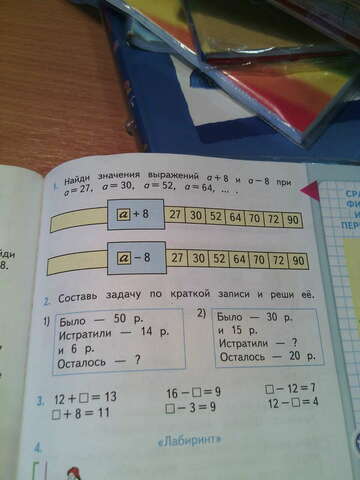 1. Найди значения выражений a + 8 и a − 8 при
a = 27, a = 30, a = 52, a = 64, ... .
a + 8 27 30 52 64 70 72 90
a − 8 27 30 52 64 70 72 90
2. Составь задачу по краткой записи и реши её.
1) Было — 50 р.
Истратили — 14 р.
и 6 р.
Осталось — ?
2) Было — 30 р.
и 15 р.
Истратили — ?
Осталось — 20 р.
3. 12 + □ = 13 16 − □ = 9 □ − 12 = 7
□ + 8 = 11 □ − 3 = 9 12 − □ = 4
«Лабиринт»
4.
йди
8.
СРА
ФИ
И
ПЕР